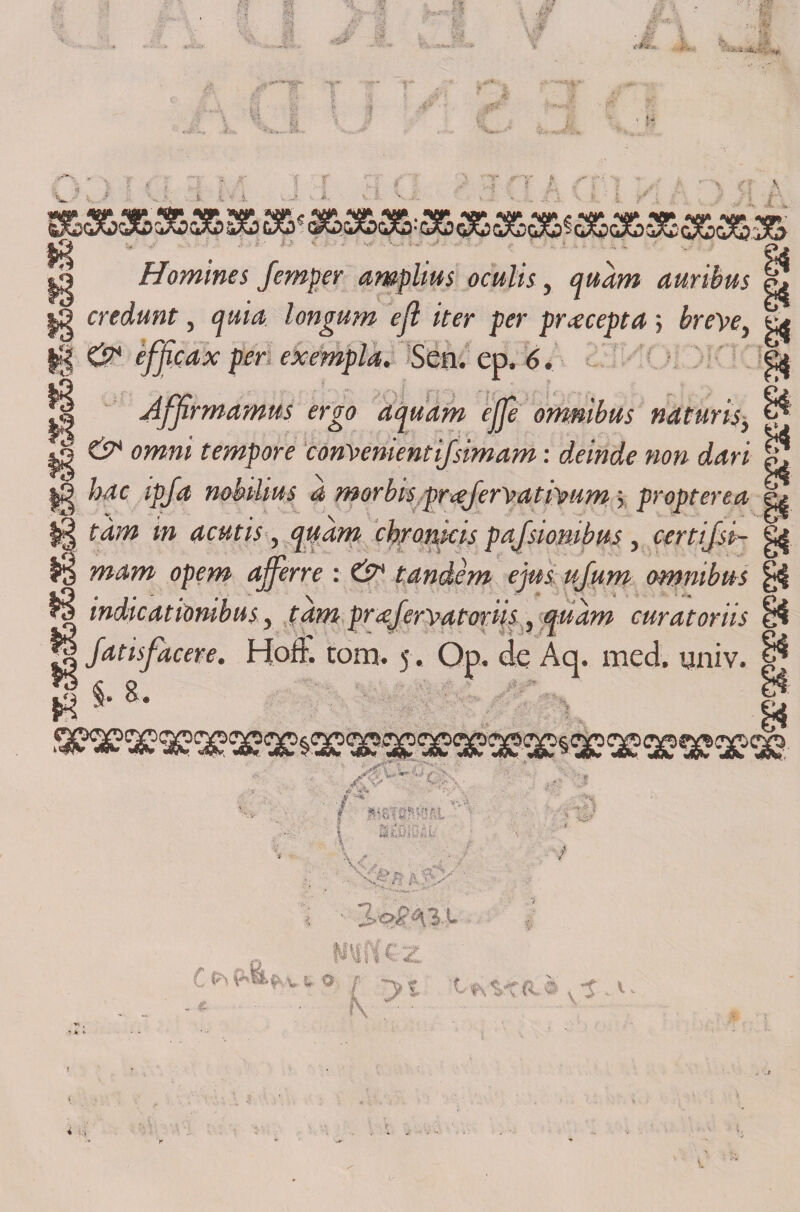 Homines ſemper amplius oculis, quàm auribus
credunt, quia longum eſt iter per præcepta; breve,
& efficax per exempla. Sen. ep. 6.
Affirmamus ergo aquam eſſe omnibus naturis,
& omni tempore convenientiſsimam: deinde non dari
hac ipſa nobilius à morbis præſervativum; propterea
tàm in acutis, quàm chronicis paſsionibus, certiſsi-
mam opem afferre: & tandèm ejus uſum omnibus
indicationibus, tàm præſervatoriis, quàm curatoriis
ſatisfacere. Hoff. tom. 5. Op. de Aq. med. univ.
§. 8.
HISTORICAL
MEDICAL
NUÑEZ
DE CASTRO, J.